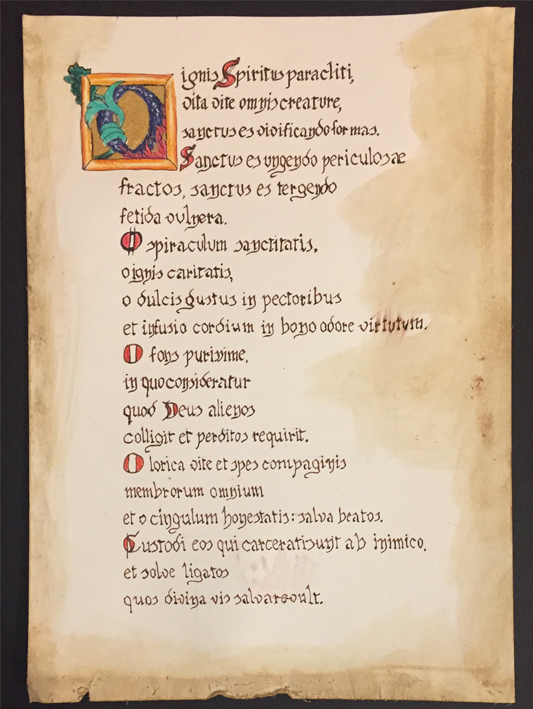 O ignis Spiritus paracliti,
vita vite omnis creature,
sanctus es vivificando formas.
Sanctus es ungendo periculosæ
fractos, sanctus es tergendo
fetida vulnera.
O spiraculum sanctitatis,
o ignis caritatis,
o dulcis gustus in pectoribus
et infusio cordium in bono odore virtutum.
O fons purissime,
in quo consideratur
quod Deus alienos
colligit et perditos requirit.
O lorica vite et spes compaginis
membrorum omnium
et o cingulum honestatis: salva beatos.
Custodi eos qui carcerati sunt ab inimico,
et solve ligatos
quos divina vis salvare vult.